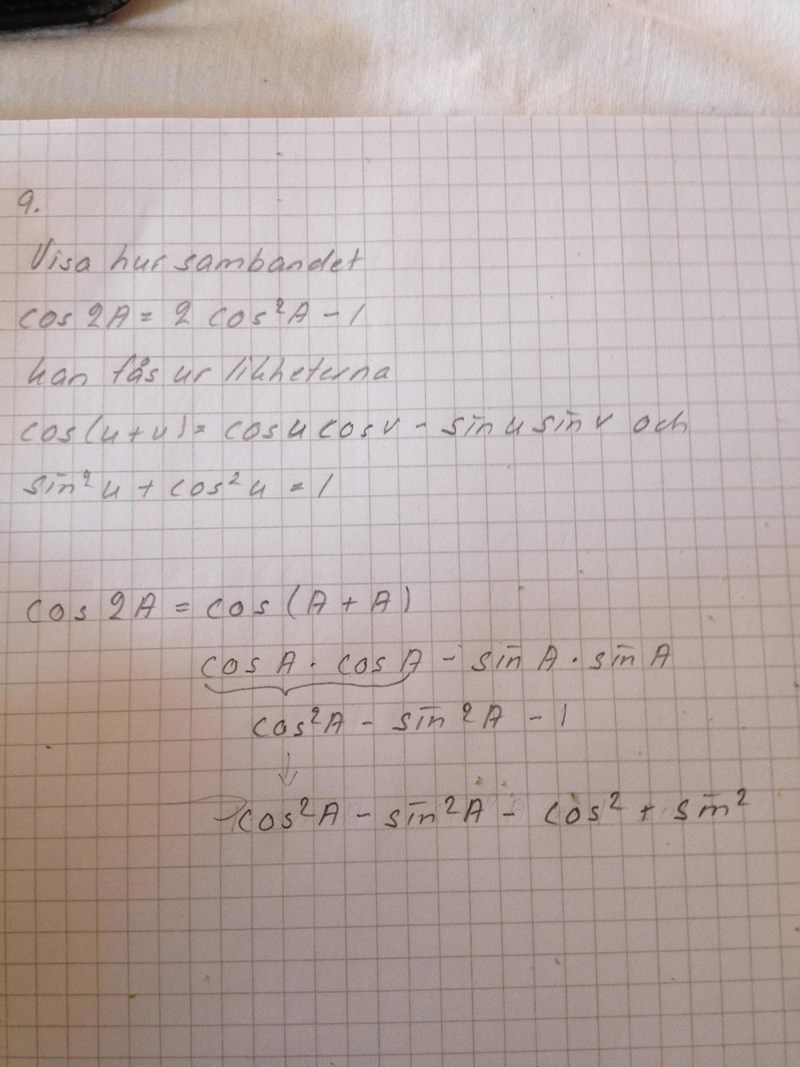 9.
Visa hur sambandet
cos 2A = 2 cos²A - 1
kan fås ur likheterna
cos(u+v) = cosu cosv - sinu sinv och
sin²u + cos²u = 1
cos 2A = cos (A + A)
cos A · cos A - sin A · sin A
cos²A - sin²A - 1
↓
cos²A - sin²A - cos² + sin²